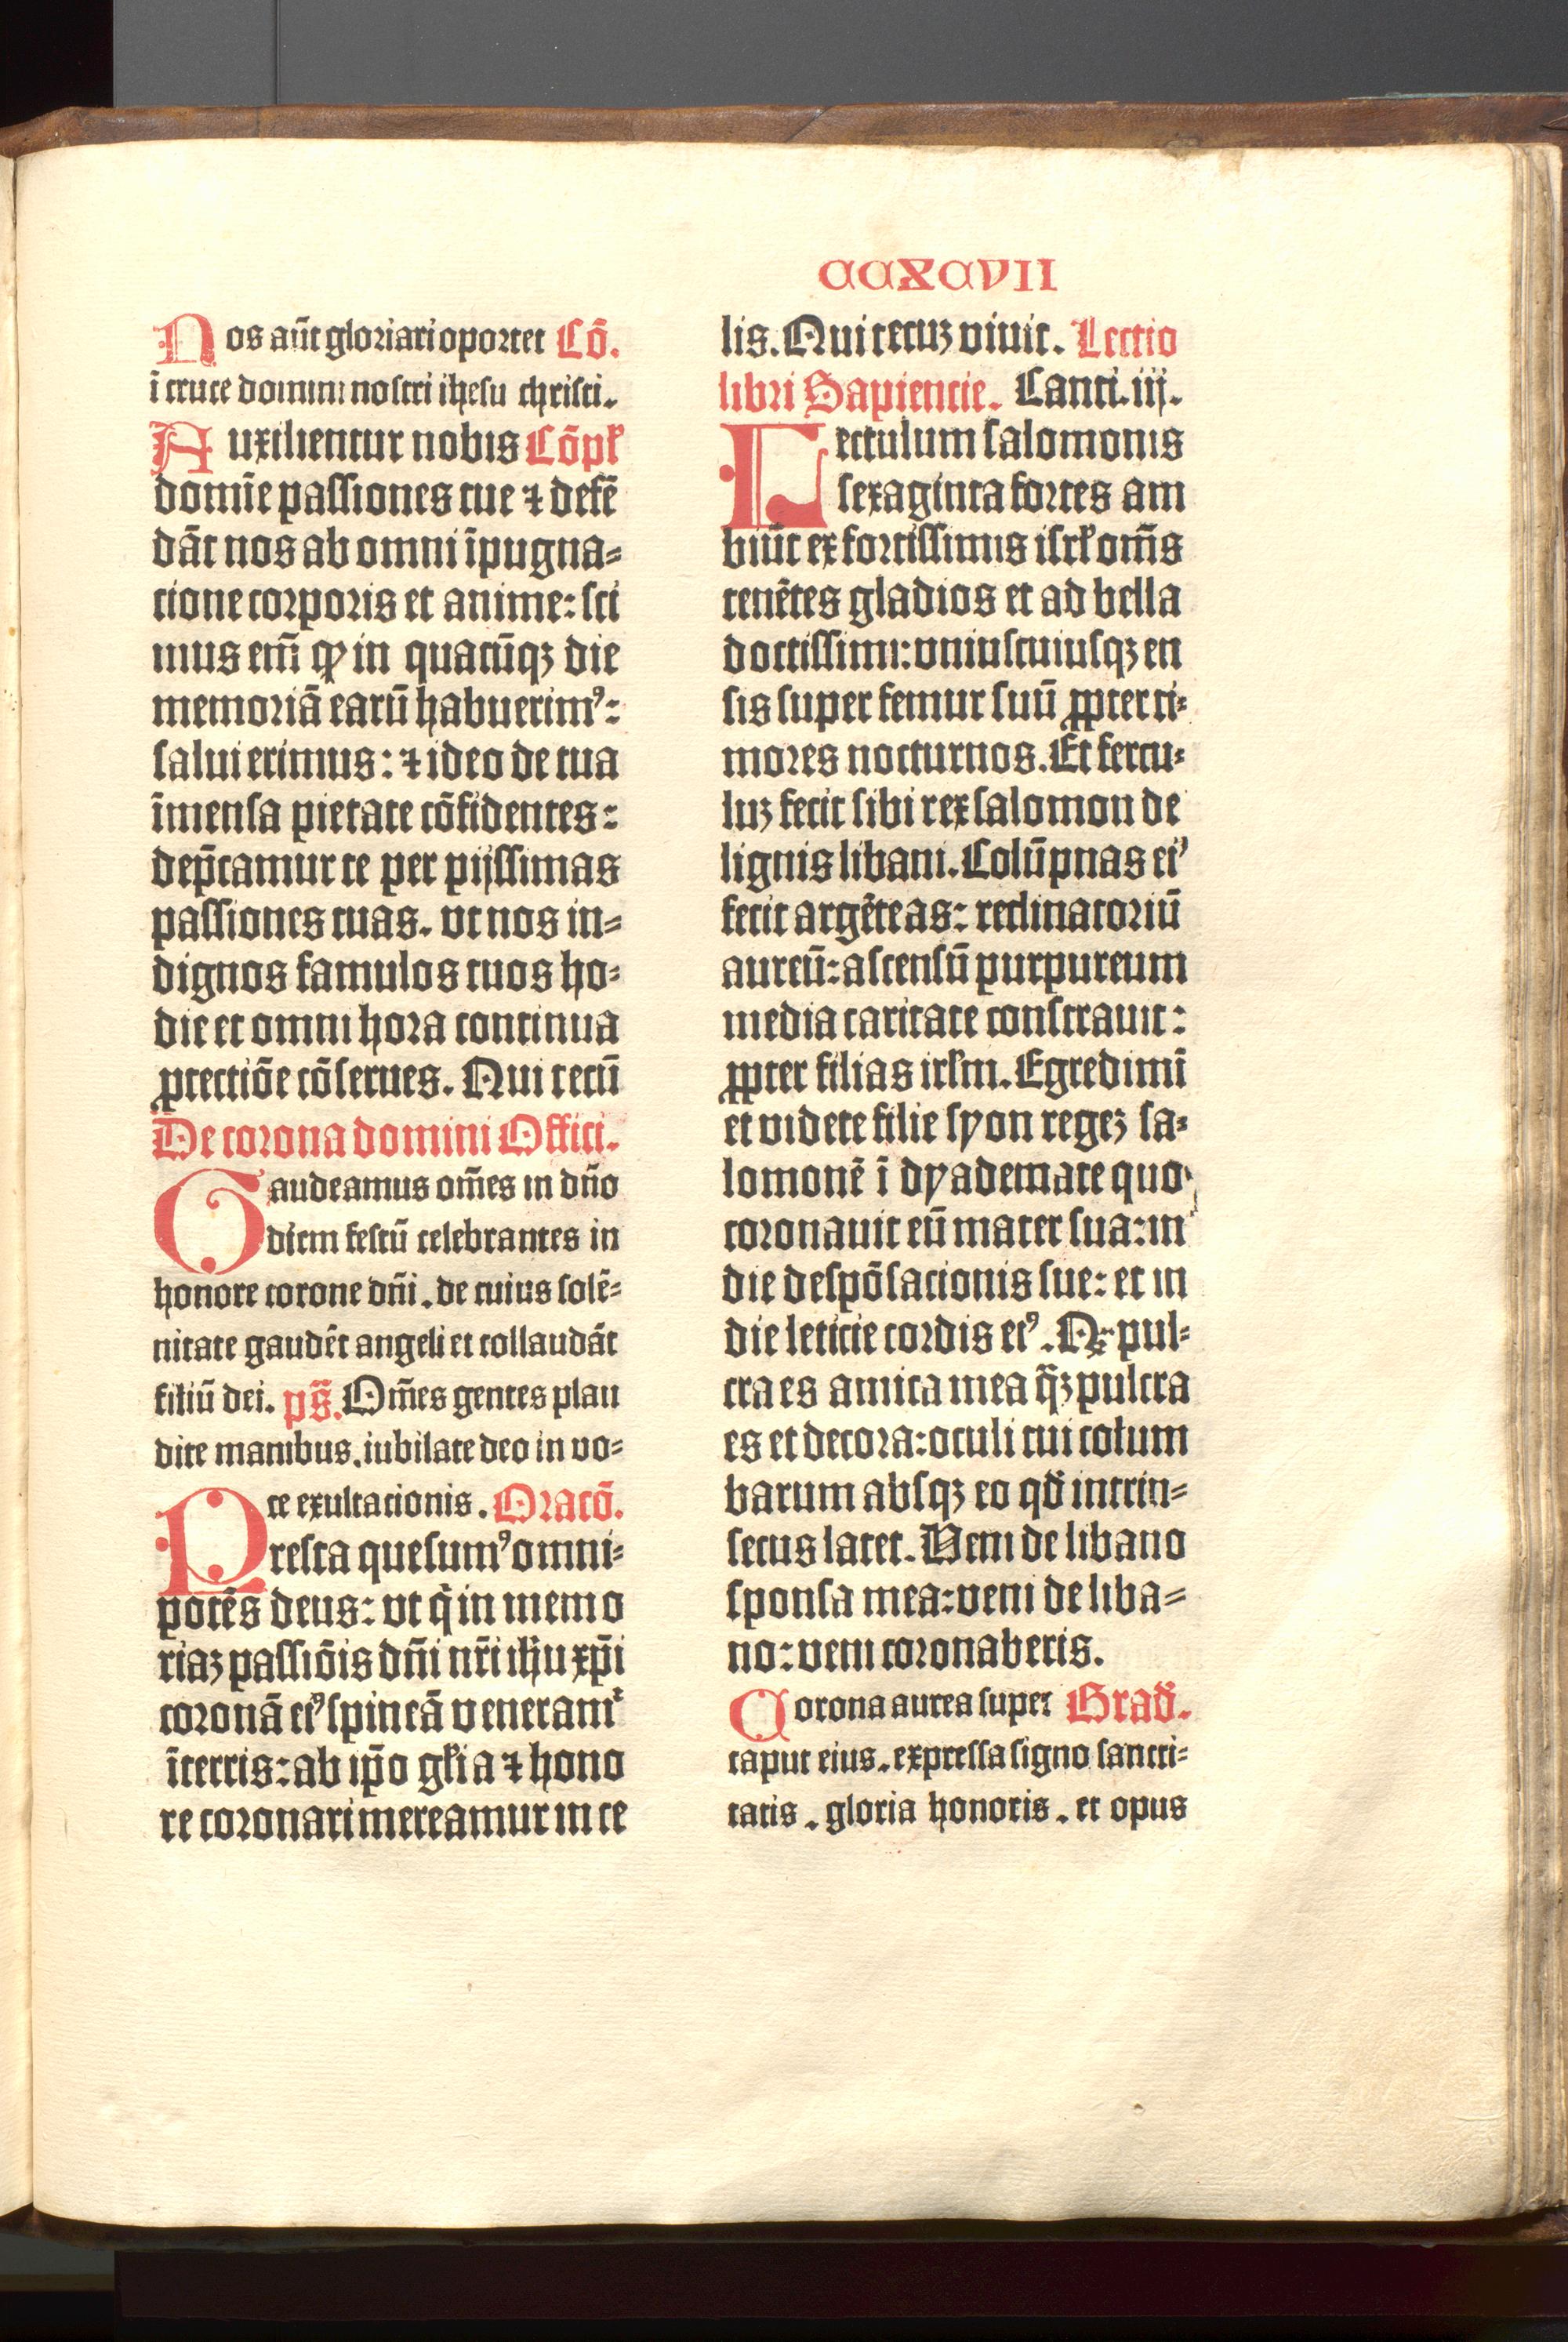 CCXCVII
Nos aūt gloriari oportet Cō.
ī cruce domini nostri ihesu christi.
Auxilientur nobis Cōpl̕
domīe passiones tue ⁊ defē
dāt nos ab omni īpugna⸗
cione corporis et anime: sci
mus em̄ ꝙ in quacūqꝫ die
memoriā earū habuerimꝰ:
salui erimus: ⁊ ideo de tua
īmensa pietate cōfidentes:
dep̄camur te per pijssimas
passiones tuas. vt nos in⸗
dignos famulos tuos ho⸗
die et omni hora continua
ꝓtectiōe cōserues. Qui tecū
De corona domini Offici.
Gaudeamus om̄es in dn̄o
diem festū celebrantes in
honore corone dn̄i. de cuius solē⸗
nitate gaudēt angeli et collaudāt
filiū dei. ps̄. Om̄es gentes plau
dite manibus. iubilate deo in vo⸗
ce exultacionis. Oracō.
Presta quesumꝰ omni⸗
potēs deus: vt q̄ in memo
riaꝫ passiōis dn̄i nr̄i ih̄u xp̄i
coronā eiꝰ spineā veneramᷣ
īterris: ab ip̄o gl̕ia ⁊ hono
re coronari mereamur in ce
lis. Qui tecuꝫ viuit. Lectio
libri Sapiencie. Canti. iij.
Lectulum salomonis
sexaginta fortes am
biūt ex fortissimis isrl̕ om̄s
tenētes gladios et ad bella
doctissimi: vniuscuiusqꝫ en
sis super femur suū ꝓpter ti⸗
mores nocturnos. Et fercu⸗
luꝫ fecit sibi rex salomon de
lignis libani. Colūpnas eiꝰ
fecit argēteas: reclinatoriū
aureū: ascensū purpureum
media caritate constrauit:
ꝓpter filias irl̕m. Egredimī
et videte filie syon regeꝫ sa⸗
lomonē ī dyademate quo
coronauit eū mater sua: in
die despōsacionis sue: et in
die leticie cordis eiꝰ. Qᷓꝫ pul⸗
cra es amica mea q̄ꝫ pulcra
es et decora: oculi tui colum
barum absqꝫ eo qd̕ intrin⸗
secus latet. Veni de libano
sponsa mea: veni de liba⸗
no: veni coronaberis.
Corona aurea super Grad̕.
caput eius. expressa signo sancti⸗
tatis. gloria honoris. et opus